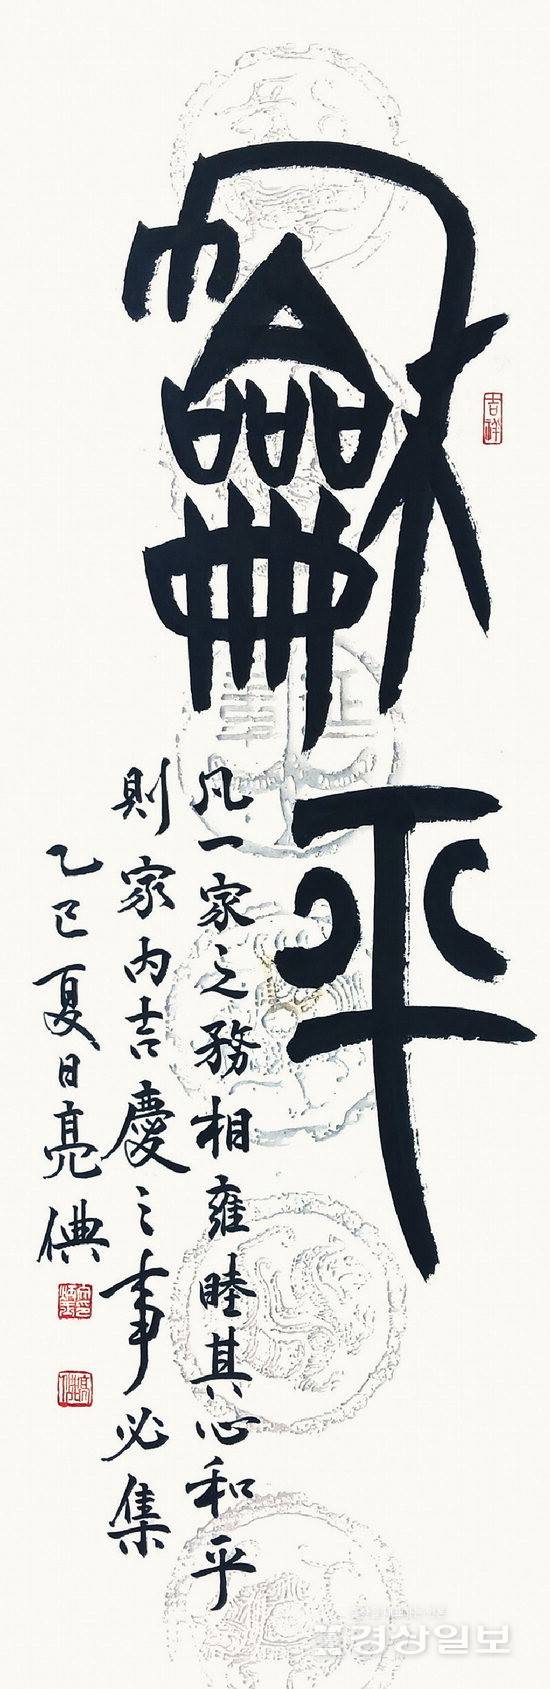 龢平
吉祥
凡一家之務相雍睦其心和平
則家內吉慶之事必集
乙巳夏日亮
경상일보